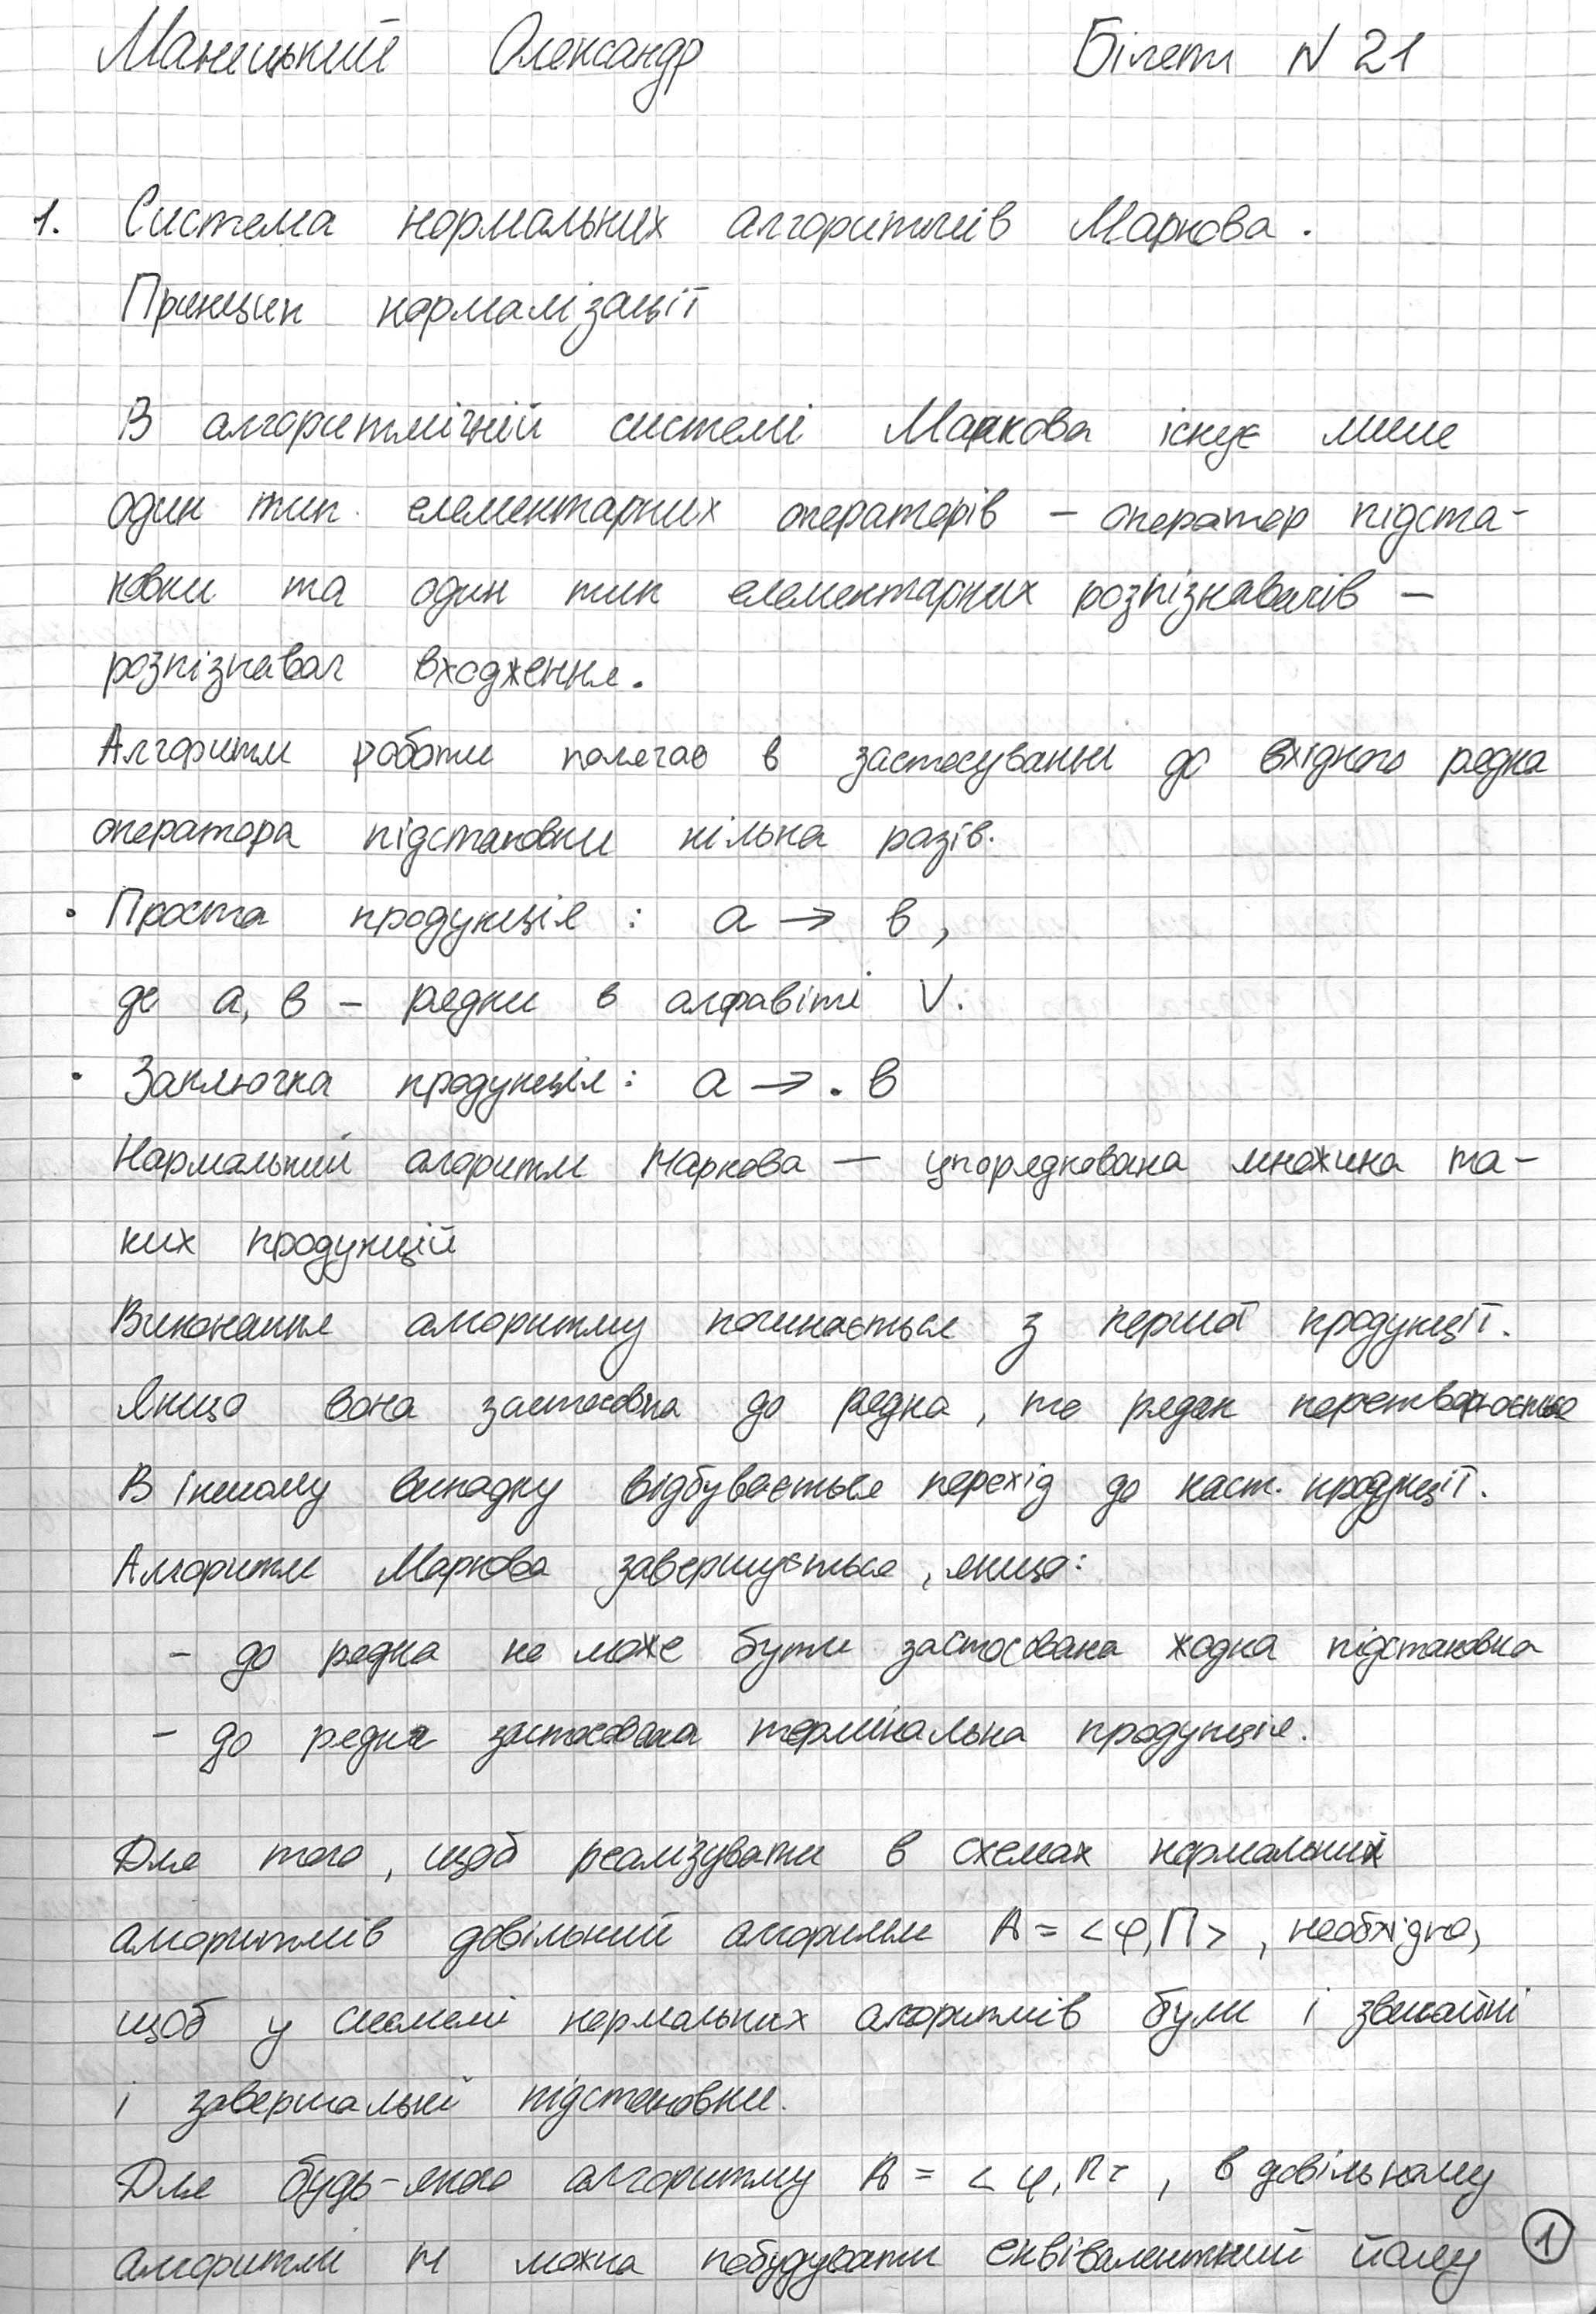 Манецький Олександр Білет N 21
1. Система нормальних алгоритмів Маркова.
Принцип нормалізації
В алгоритмічній системі Маркова існує лише
один тип елементарних операторів – оператор підста-
новки та один тип елементарних розпізнавачів –
розпізнавач входження.
Алгоритм роботи полягає в застосуванні до вхідного рядка
оператора підстановки кілька разів.
• Проста продукція: a → b,
де a, b – рядки в алфавіті V.
• Заключна продукція: a → . b
Нормальний алгоритм Маркова — упорядкована множина та-
ких продукцій
Виконання алгоритму починається з першої продукції.
Якщо вона застосовна до рядка, то рядок перетворюється
В іншому випадку відбувається перехід до наст. продукції.
Алгоритм Маркова завершується, якщо:
- до рядка не може бути застосована жодна підстановка
- до рядка застосована термінальна продукція.
Для того, щоб реалізувати в схемах нормальних
алгоритмів довільний алгоритм A = <φ, П>, необхідно,
щоб у системі нормальних алгоритмів були і звичайні
і завершальні підстановки.
Для будь-якого алгоритму A = <φ, П>, в довільному
алгоритмі M можна побудувати еквівалентний йому
1